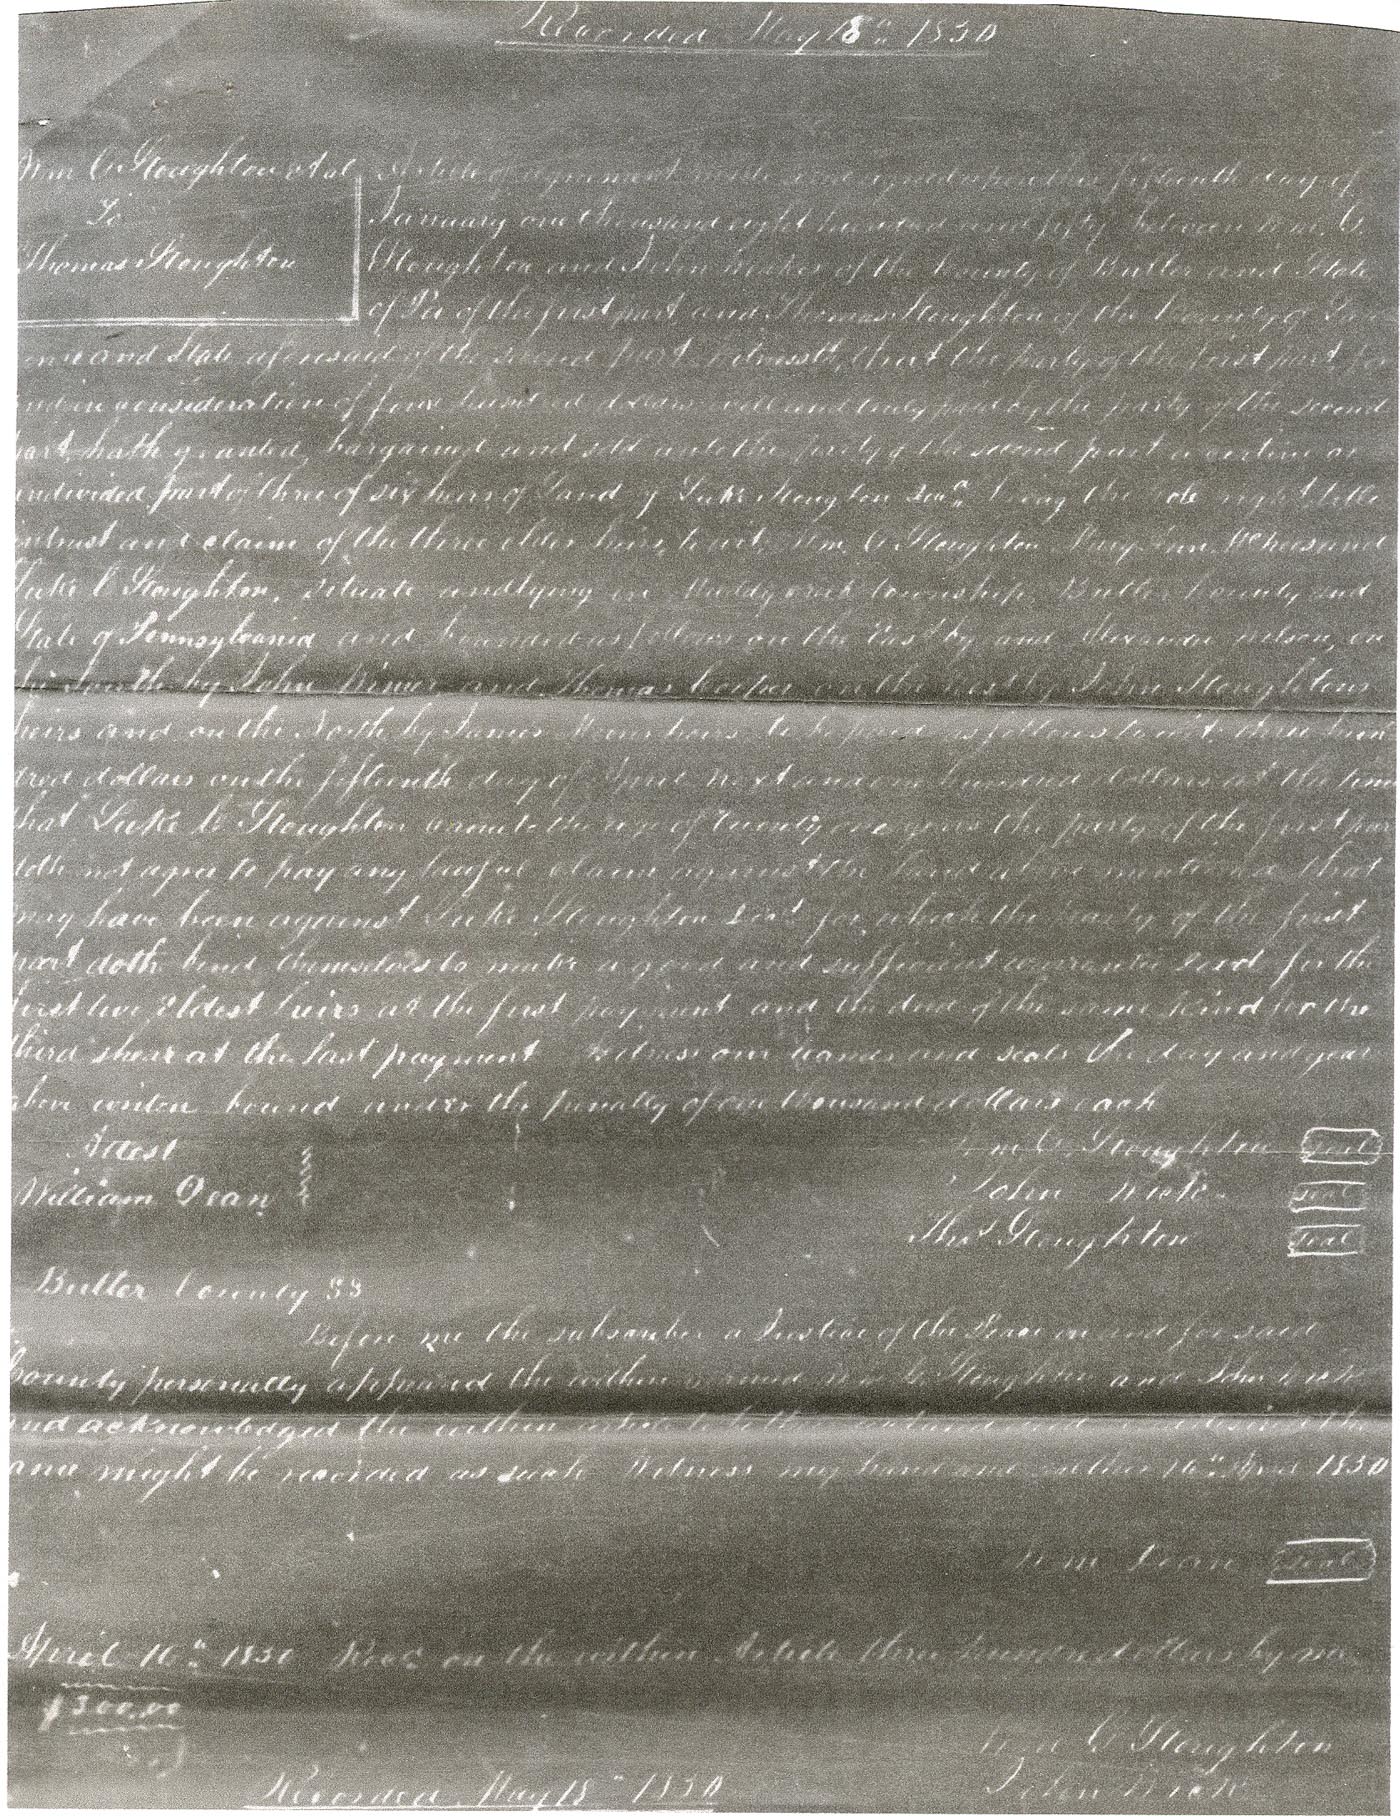 Recorded May 18th 1850
Wm C Stoughton et al
To
Thomas Stoughton
Article of agreement made and agreed upon this fifteenth day of
January one thousand eight hundred and fifty between Wm. C.
Stoughton and John of the County of Butler and State
of Pa of the first part and Thomas Stoughton of the County of
and State aforesaid of the second part Witnesseth, that the party of the first part, for
and in consideration of four hundred dollars well and truly paid by the party of the second
part, hath granted, bargained and sold unto the party of the second part a certain or
undivided part of three of six heirs of Land of Luke Stoughton being the sole right title
intrust and claim of the three elder heirs, to wit, Wm. C Stoughton Mary Ann and
Luke C Stoughton, situate and lying in Muddycreek township, Butler County and
State of Pennsylvania and bounded as follows on the by and Alexander Wilson, on
the South by John and Thomas Cooper on the west by John Stoughtons
heirs and on the North by James heirs to be paid as follows to wit, three hun
dred dollars on the fifteenth day of next and one hundred dollars at the time
that Luke C Stoughton to the age of twenty one years the party of the first part
doth not agree to pay any lawful claim against the land above mentioned that
may have been against Luke Stoughton for which the party of the first
part doth bind themselves to make a good and sufficient deed for the
first two Eldest heirs at the first payment and the deed of the same kind for the
third shear at the last payment Witness our hands and seals the day and year
above writen bound under the penalty of one thousand dollars each
Attest
William Dean
Wm C. Stoughton seal
John seal
Thos Stoughton seal
Butler County SS
Before me the subscriber a Justice of the Peace in and for said
County personally appeared the within named Wm C Stoughton and John
and acknowledged the within
and might be recorded as such Witness my hand and seal this 16th April 1850
Wm Dean seal
April 16th 1850 Recd on the within Article three hundred dollars by me
$300.00
Wm C Stoughton
John
Recorded May 18th 1850